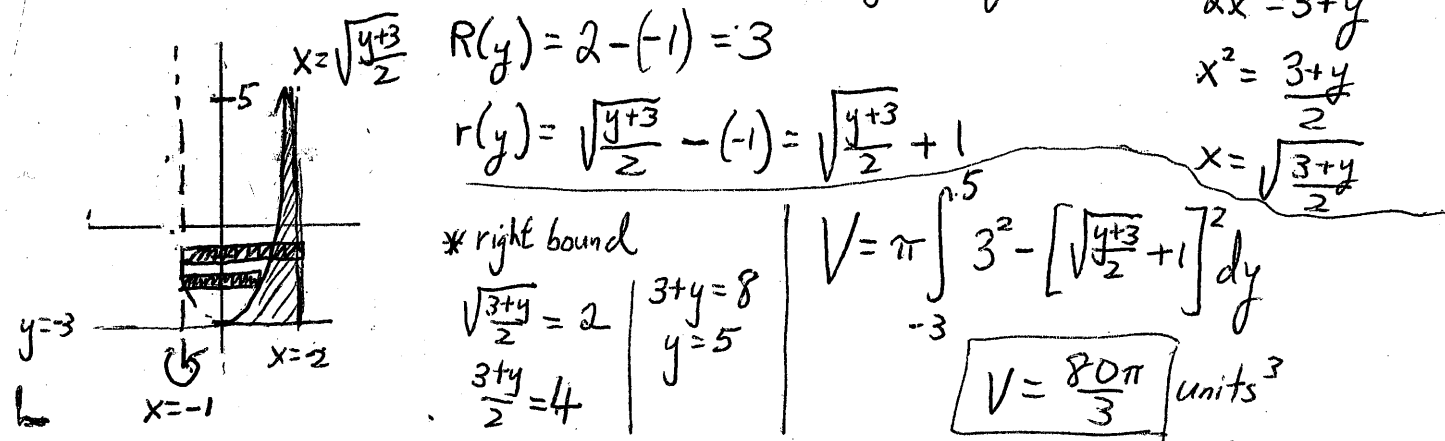 2x² = 3+y
x = √((y+3)/2)
5
y=-3
x=2
x=-1
R(y) = 2-(-1) = 3
r(y) = √((y+3)/2) - (-1) = √((y+3)/2) + 1
x² = (3+y)/2
x = √((3+y)/2)
* right bound
√((3+y)/2) = 2
(3+y)/2 = 4
3+y = 8
y = 5
V = π∫₋₃⁵ 3² - [√((y+3)/2) + 1]² dy
V = 80π/3 units³